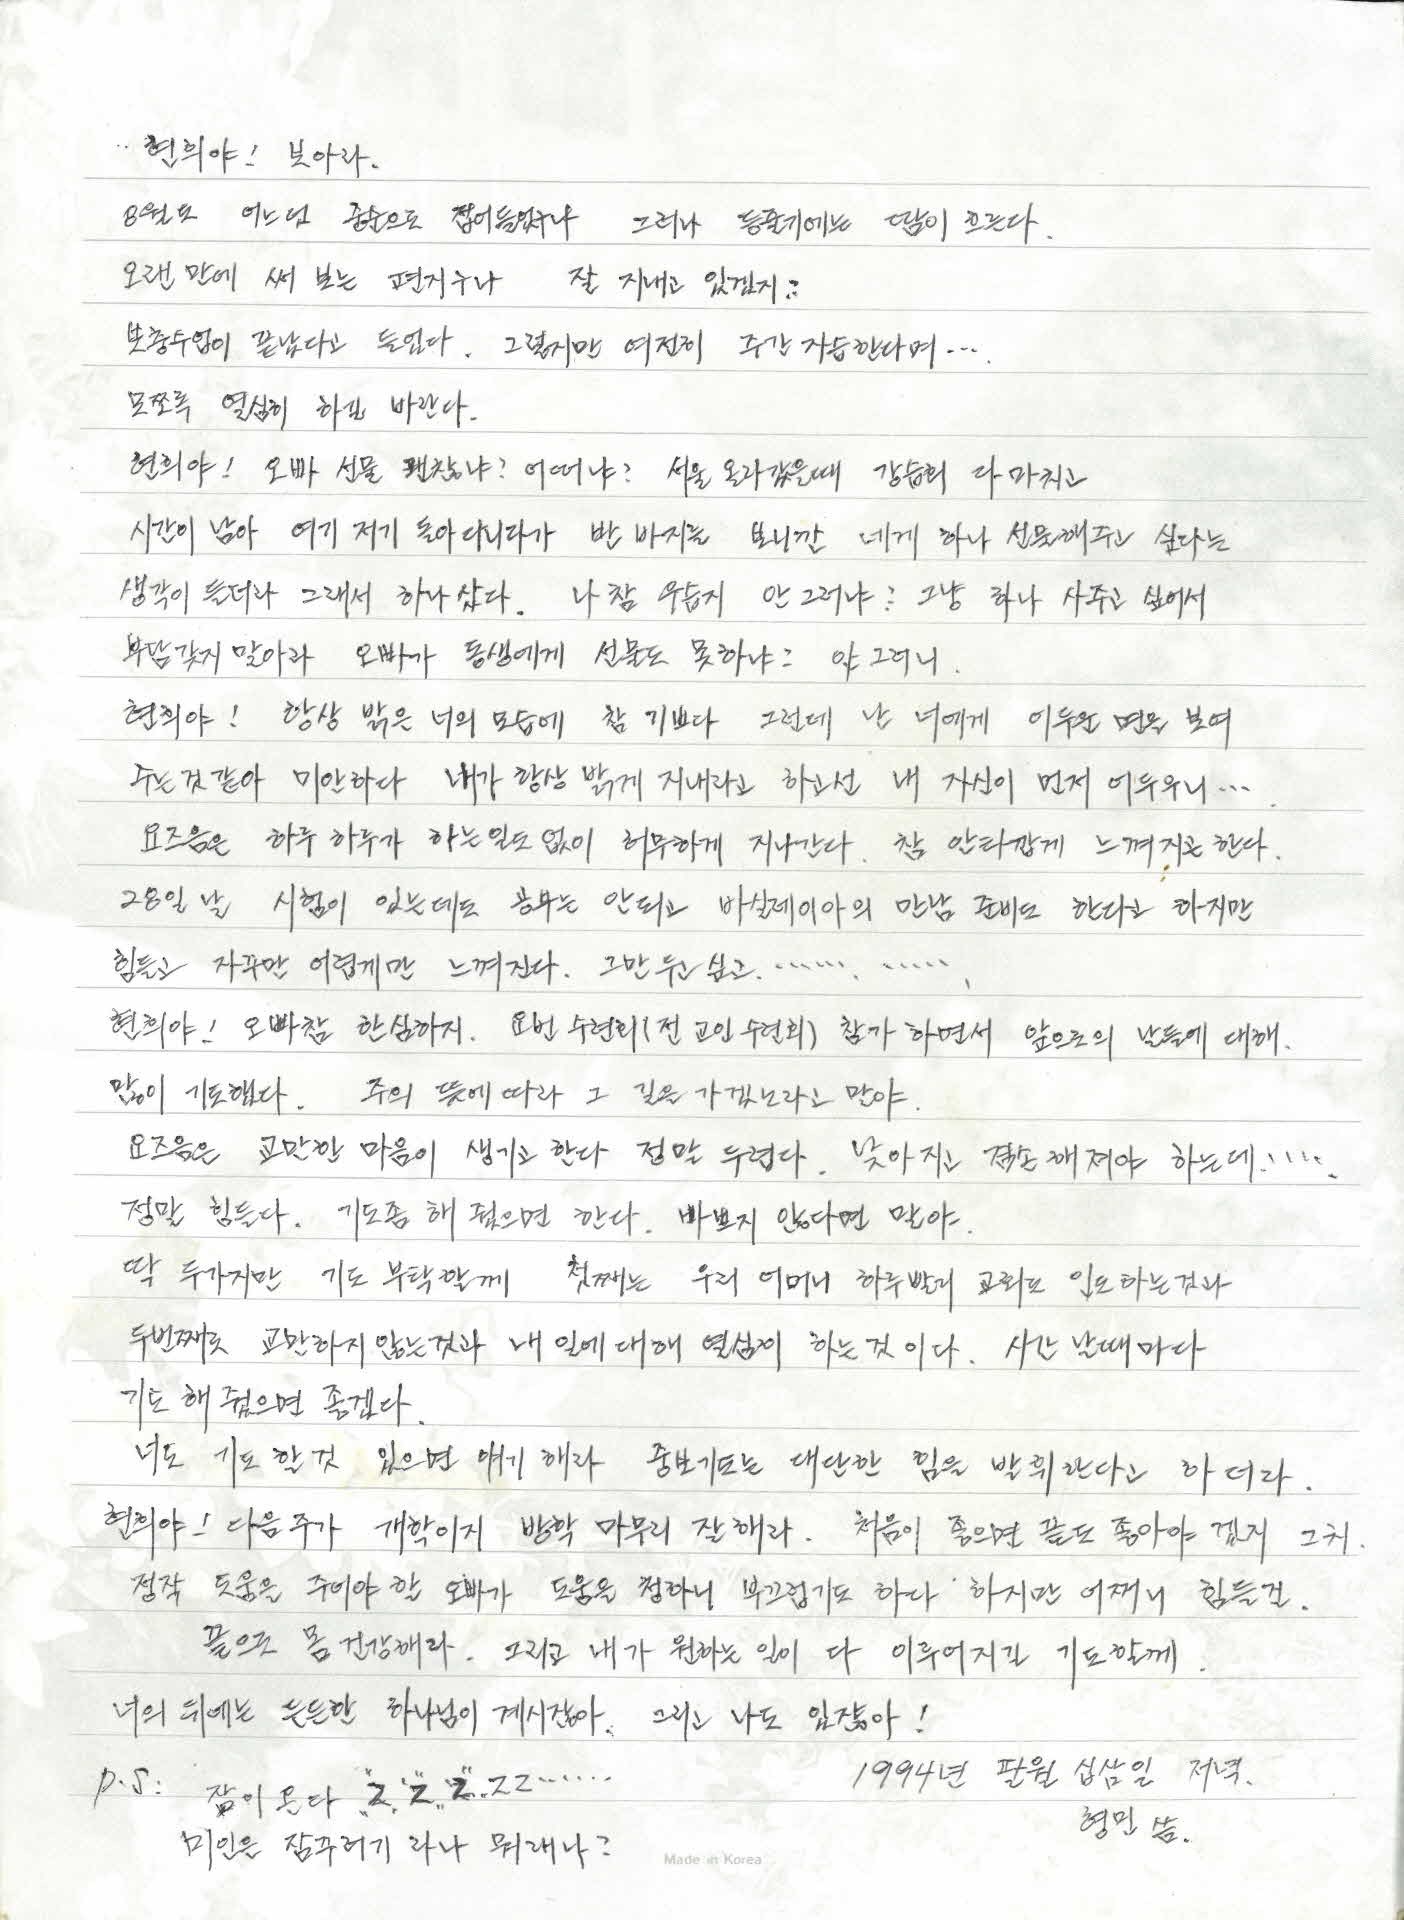 현희야! 보아라.
8월도 어느덧 중순으로 접어들었구나 그러나 등줄기에는 땀이 흐른다.
오랜 만에 써 보는 편지구나 잘 지내고 있겠지?
보충수업이 끝났다고 들었다. 그렇지만 여전히 주간자습한다며....
모쪼록 열심히 하길 바란다.
현희야! 오빠 선물 괜찮냐? 어떠냐? 서울 올라갔을때 강습회 다 마치고
시간이 남아 여기 저기 돌아다니다가 반 바지를 보니깐 네게 하나 선물해주고 싶다는
생각이 들더라 그래서 하나 샀다. 나 참 우습지 안 그러냐? 그냥 하나 사주고 싶어서
부담갖지 말아라 오빠가 동생에게 선물도 못하냐? 안 그러니.
현희야! 항상 밝은 너의 모습에 참 기쁘다 그런데 난 너에게 어두운 면을 보여
주는것같아 미안하다 내가 항상 밝게 지내라고 하고선 내 자신이 먼저 어두우니....
요즈음은 하루 하루가 하는일도 없이 허무하게 지나간다. 참 안타깝게 느껴지곤 한다.
28일날 시험이 있는데도 공부는 안되고 바실레이아의 만남 준비도 한다고 하지만
힘들고 자꾸만 어렵게만 느껴진다. 그만 두고 싶고. ...... ......
현희야! 오빠참 한심하지. 요번 수련회(전 교인 수련회) 참가 하면서 앞으로의 날들에 대해.
많이 기도했다. 주의 뜻에 따라 그 길을 가겠노라고 말야.
요즈음은 교만한 마음이 생기고 한다 정말 두렵다. 낮아지고 겸손해져야 하는데.....
정말 힘들다. 기도좀 해 줬으면 한다. 바쁘지 않다면 말야.
딱 두가지만 기도 부탁할께 첫째는 우리 어머니 하루빨리 교회로 인도하는것과
두번째로 교만하지않는것과 내 일에 대해 열심히 하는것 이다. 시간 날때마다
기도 해 줬으면 좋겠다.
너도 기도 할것 있으면 얘기해라 중보기도는 대단한 힘을 발휘한다고 하더라.
현희야! 다음주가 개학이지 방학 마무리 잘해라. 처음이 좋으면 끝도 좋아야 겠지 그치.
정작 도움을 주어야 할 오빠가 도움을 청하니 부끄럽기도 하다 하지만 어쩌니 힘든걸.
끝으로 몸 건강해라. 그리고 네가 원하는 일이 다 이루어지길 기도할께.
너의 뒤에는 든든한 하나님이 계시잖아. 그리고 나도 있잖아!
1994년 팔월 십삼일 저녁.
형민 씀.
P.S: 잠이 온다 Z.Z.Z.ZZ......
미인은 잠꾸러기 라나 뭐래나?
Made in Korea